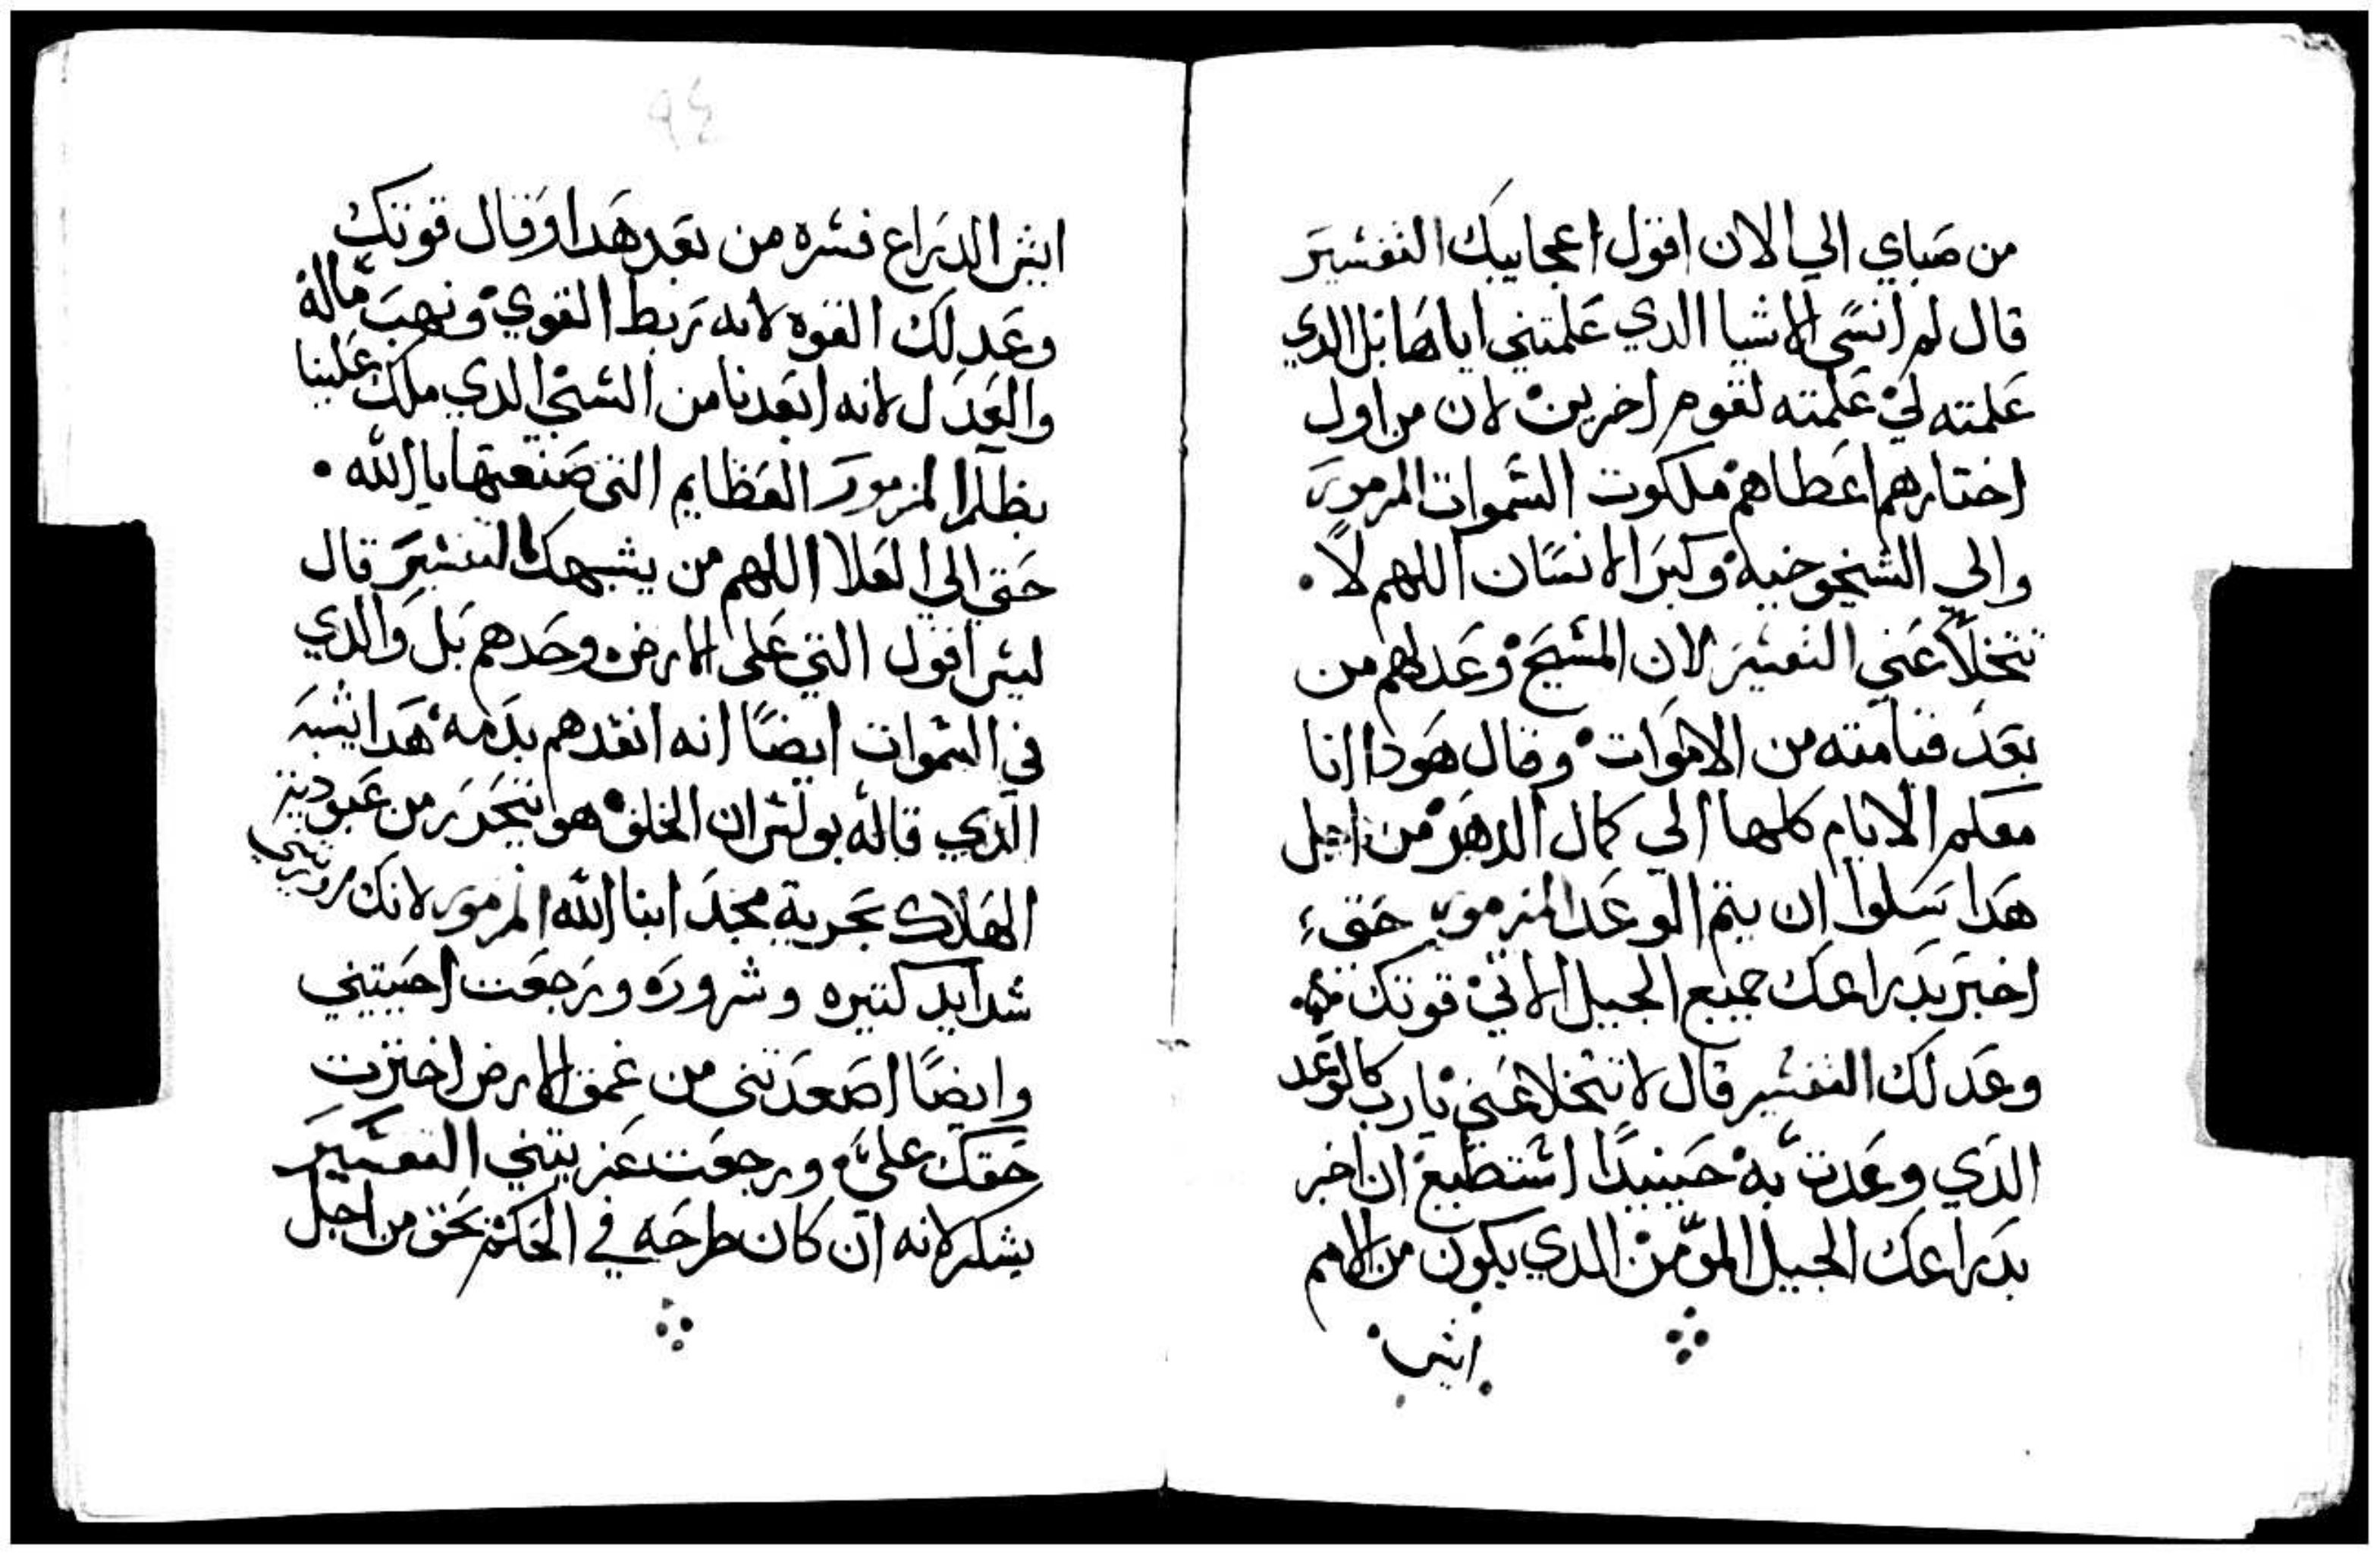 من صباي الي الان اقول اعجابيك التفسير
قال لم انسي الاشيا الدي علمتني اياها بل الدي
علمته لي علمته لقوم اخرين لان من اول
اختارهم اعطاهم ملكوت السموات المزمور
والي الشيخوخية وكبر الانسان اللهم لا.
تتخلا عني التفسير لان المسيح وعدهم من
بعد قيامته من الاموات وقال هودا انا
معكم الايام كلها الي كمال الدهر من اجل
هدا سلوا ان يتم الوعد المزمور حتي
اخبر بدراعك جميع الجيل الاتي قوتك
وعدلك التفسير قال لا تتخلا عني يارب كالوعد
الدي وعدت به حينيدا استطيع ان اخبر
بدراعك الجيل المومن الدي يكون من الامم
ايش
٩٤
ايش الدراع فسره من بعد هدا وقال قوتك
وعدلك القوه لانه ربط القوي ونهب ماله
والعدل لانه ابعدنا من الشي الدي ملك علينا
بظلم المزمور العظايم التي صنعتها يا الله .
حتي الي العلا اللهم من يشبهك التفسير قال
ليس اقول التي علي الارض وحدهم بل والدي
في السموات ايضا انه انقدهم بدمه هدا يشبه
الدي قاله بولس ان الخلق هو يتحرر من عبودية
الهلاك بحرية مجد ابنا الله المزمور لانك اوريتني
شدايد كتيره وشروره ورجعت احييتني
وايضا اصعدتني من غمق الارض اختزت
حقك علي ورجعت عزيتني التفسير
يشكر لانه ان كان طرحه في الحكم بحق من اجل